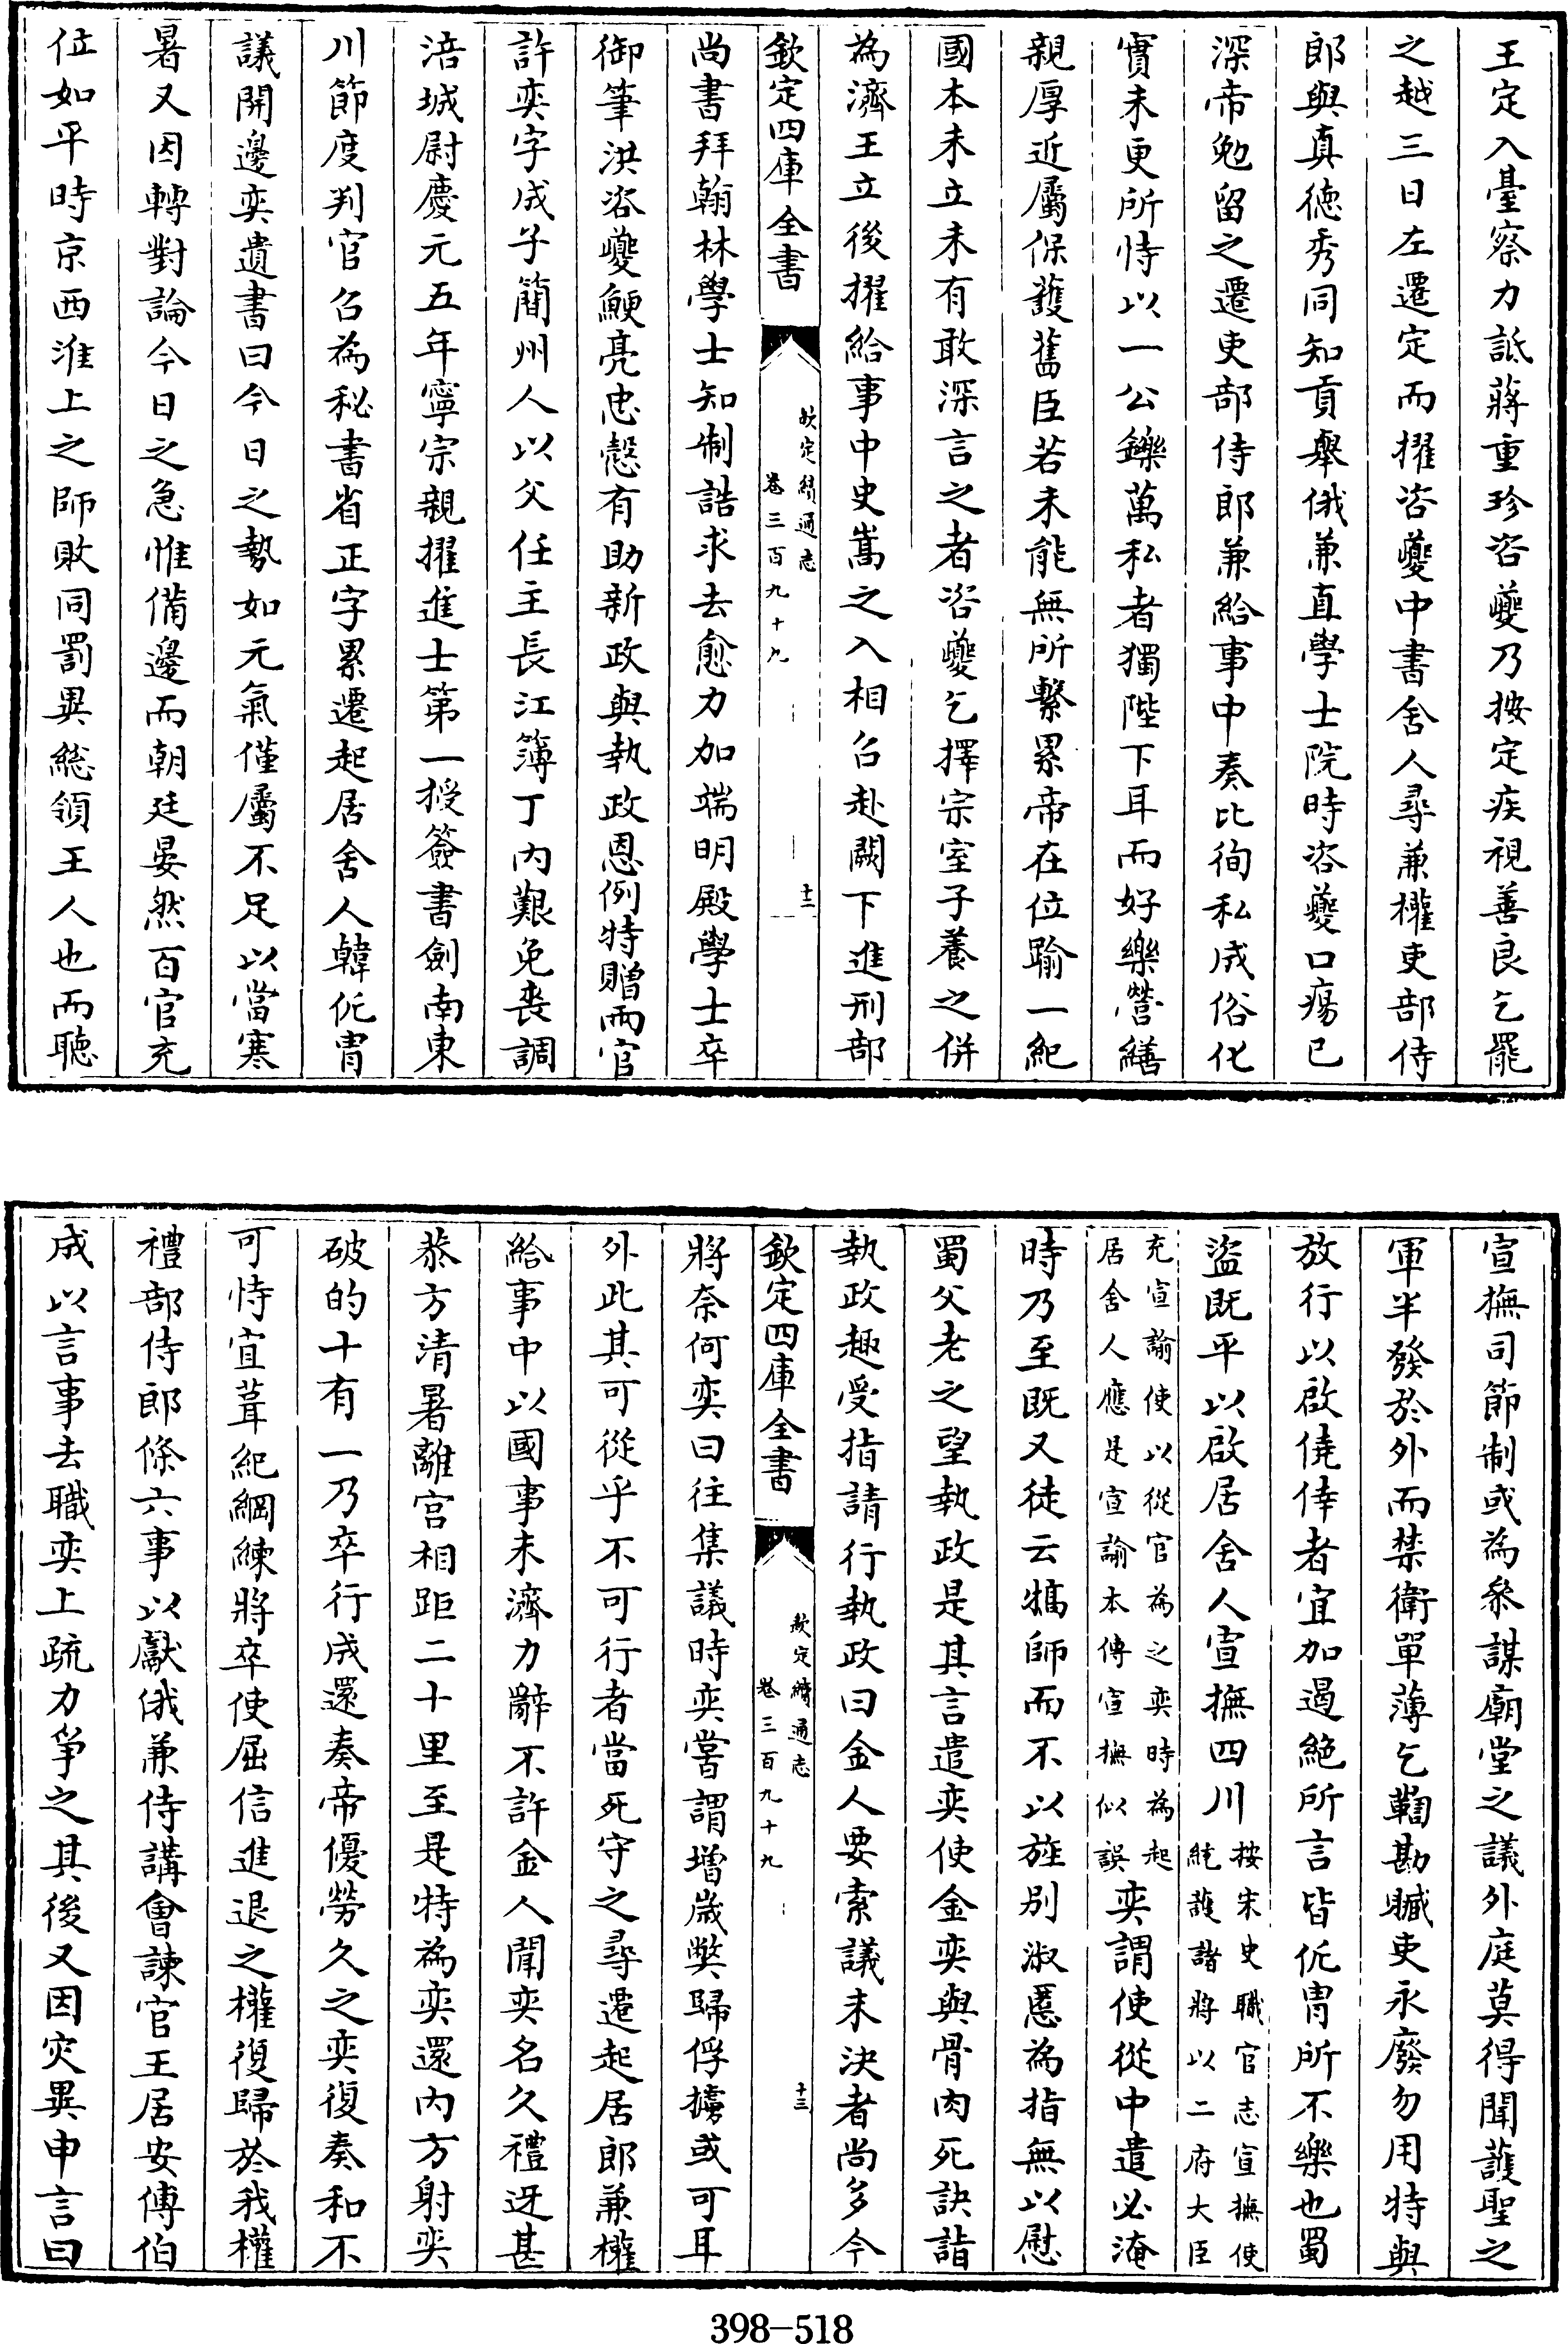 王定入臺察力詆蔣重珍咨夔乃按定疾視善良乞罷
之越三日左遷定而擢咨夔中書舍人尋兼權吏部侍
郎與真德秀同知貢舉俄兼直學士院時咨夔口瘍已
深帝勉留之遷吏部侍郎兼給事中奏比徇私成俗化
實未更所恃以一公鑠萬私者獨陛下耳而好樂營繕
親厚近屬保護舊臣若未能無所繫累帝在位踰一紀
國本未立未有敢深言之者咨夔乞擇宗室子養之併
為濟王立後擢給事中史嵩之入相召赴闕下進刑部
欽定四庫全書
欽定續通志
卷三百九十九
十二
尚書拜翰林學士知制誥求去愈力加端明殿學士卒
御筆洪咨夔鯁亮忠慤有助新政與執政恩例特贈兩官
許奕字成子簡州人以父任主長江簿丁內艱免喪調
涪城尉慶元五年寧宗親擢進士第一授簽書劍南東
川節度判官召為秘書省正字累遷起居舍人韓侂胄
議開邊奕遺書曰今日之勢如元氣僅屬不足以當寒
暑又因轉對論今日之急惟備邊而朝廷晏然百官充
位如平時京西淮上之師敗同罰異總領王人也而聽
宣撫司節制或為叅謀廟堂之議外庭莫得聞護聖之
軍半發於外而禁衛單薄乞鞫勘贓吏永廢勿用特與
放行以啟僥倖者宜加遏絶所言皆侂胄所不樂也蜀
盜既平以啟居舍人宣撫四川按宋史職官志宣撫使
統護諸將以二府大臣
充宣諭使以從官為之奕時為起
居舍人應是宣諭本傳宣撫似誤奕謂使從中遣必淹
時乃至既又徒云犒師而不以旌别淑慝為指無以慰
蜀父老之望執政是其言遣奕使金奕與骨肉死訣詣
執政趣受指請行執政曰金人要索議未決者尚多今
欽定四庫全書
欽定續通志
卷三百九十九
十三
將奈何奕曰往集議時奕嘗謂增嵗幣歸俘擄或可耳
外此其可從乎不可行者當死守之尋遷起居郎兼權
給事中以國事未濟力辭不許金人聞奕名久禮迓甚
恭方清暑離宫相距二十里至是特為奕還内方射奕
破的十有一乃卒行成還奏帝優勞久之奕復奏和不
可恃宜葺紀綱練將卒使屈信進退之權復歸於我權
禮部侍郎條六事以獻俄兼侍講會諫官王居安傅伯
成以言事去職奕上疏力爭之其後又因災異申言曰
398-518